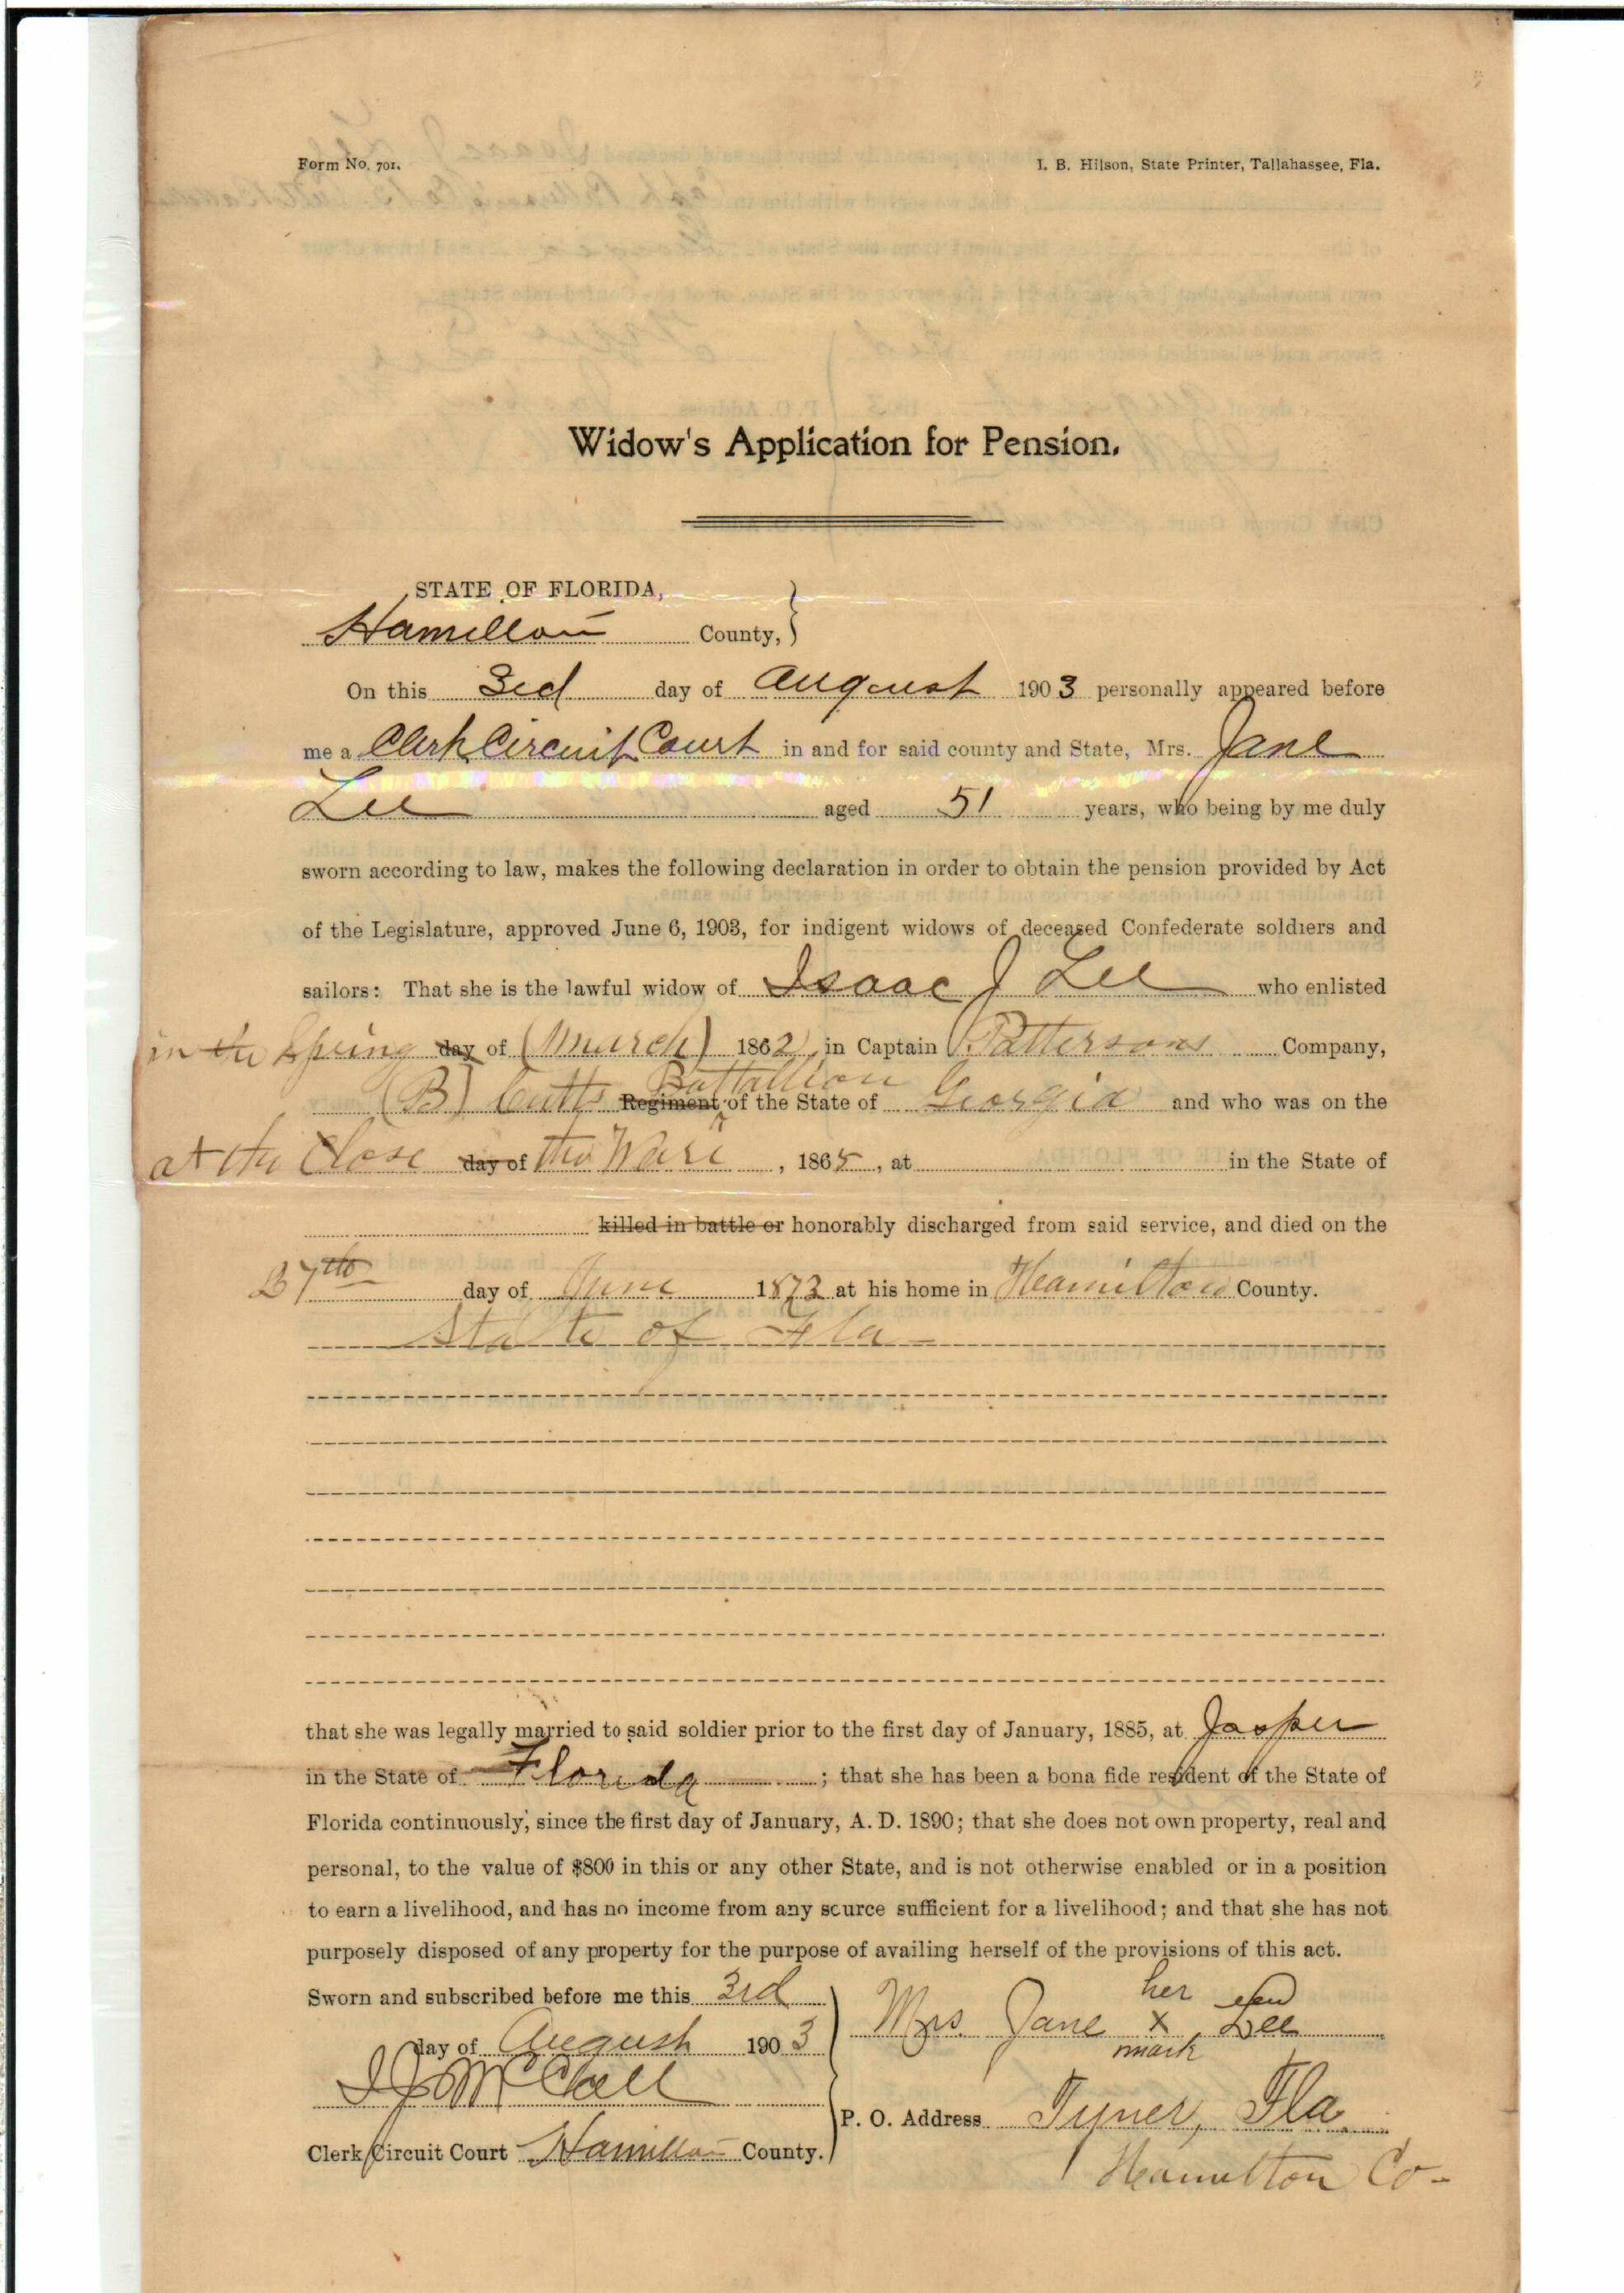 Form No. 701.
I. B. Hilson, State Printer, Tallahassee, Fla.
Widow's Application for Pension.
STATE OF FLORIDA,
Hamilton County,
On this 3rd day of August 1903 personally appeared before
me a Clerk Circuit Court in and for said county and State, Mrs. Jane
Lee aged 51 years, who being by me duly
sworn according to law, makes the following declaration in order to obtain the pension provided by Act
of the Legislature, approved June 6, 1903, for indigent widows of deceased Confederate soldiers and
sailors: That she is the lawful widow of Isaac J Lee who enlisted
in the Spring day of (March) 1862, in Captain Pattersons Company,
(B) Cutts Battallion Regiment of the State of Georgia and who was on the
at the Close day of the War, 1865, at in the State of
killed in battle or honorably discharged from said service, and died on the
27th day of June 1873 at his home in Hamilton County.
State of Fla
that she was legally married to said soldier prior to the first day of January, 1885, at Jasper
in the State of Florida; that she has been a bona fide resident of the State of
Florida continuously, since the first day of January, A. D. 1890; that she does not own property, real and
personal, to the value of $800 in this or any other State, and is not otherwise enabled or in a position
to earn a livelihood, and has no income from any source sufficient for a livelihood; and that she has not
purposely disposed of any property for the purpose of availing herself of the provisions of this act.
Sworn and subscribed before me this 3rd
day of August 1903
Clerk Circuit Court Hamilton County.
her
Mrs. Jane x Lee
mark
P. O. Address Tyner, Fla.
Hamilton Co-